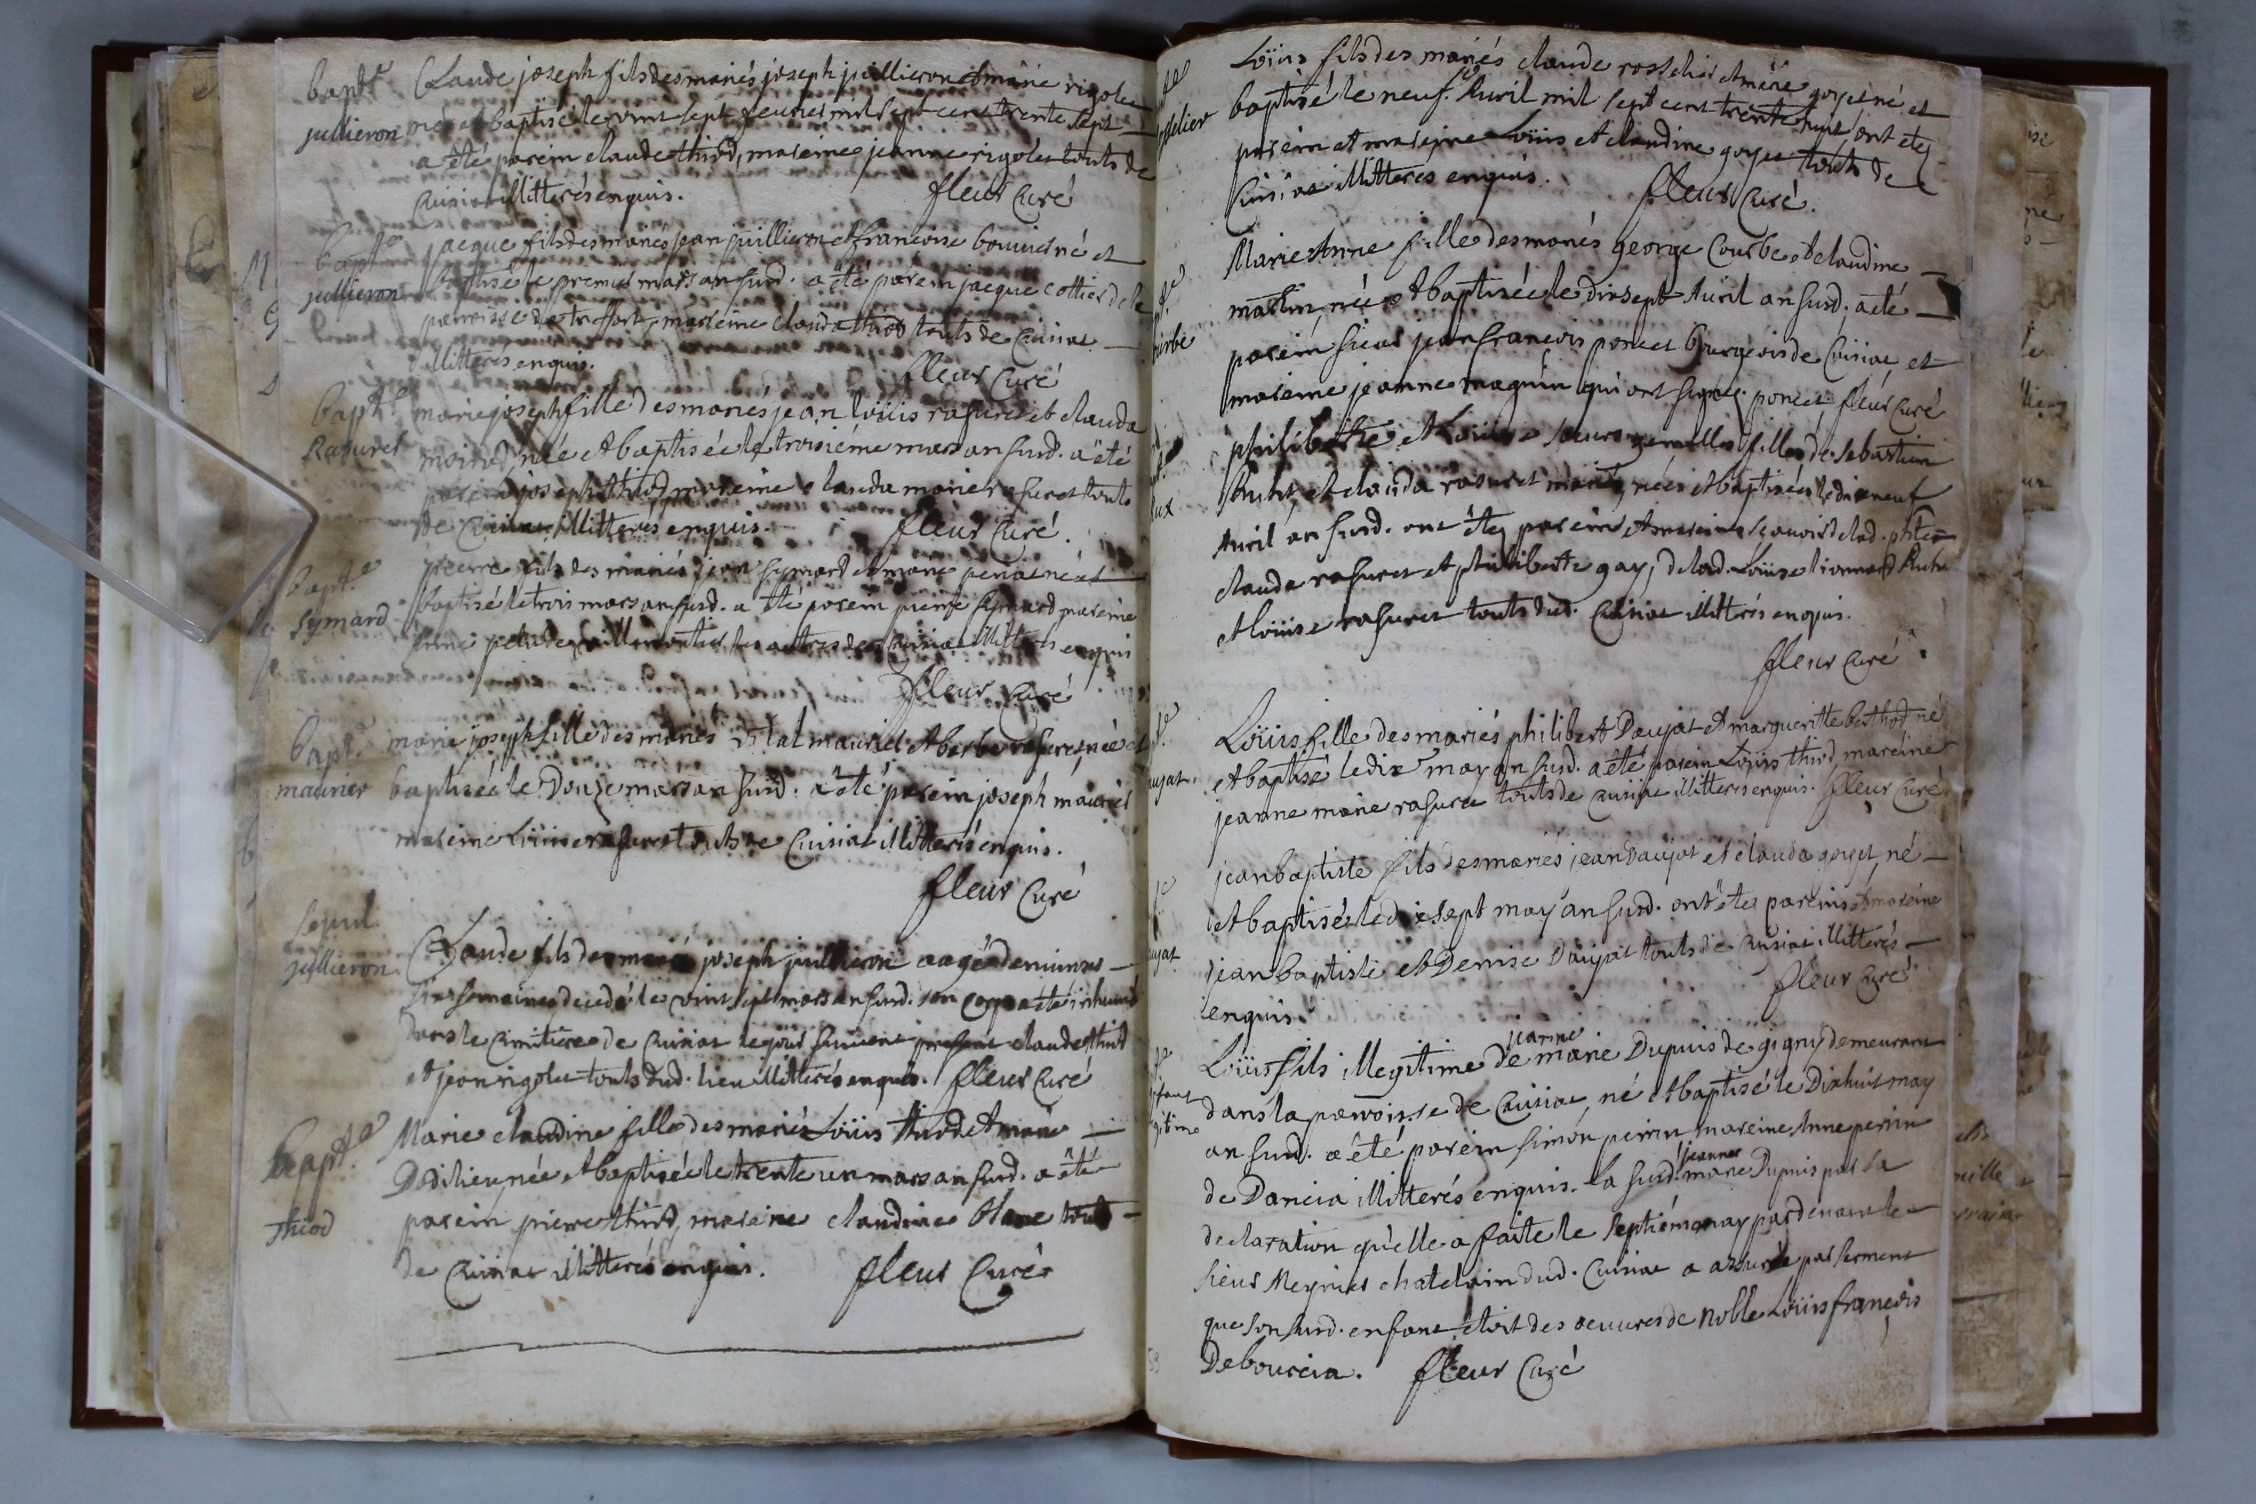 bapt.e
jullieron
Claude joseph fils des mariés joseph juillieron et marie rigolet
né et baptisé le vint sept feurier mil sept cent trente sept
a été parein claude thiod, mareine jeanne rigolet touts de
Cuisiat illitterés enquis. fleur Curé
bapt.e
jullieron
jacque fils des mariés jean juillieron et francoise bouuier né et
baptisé le premier mars an susd. a été parein jacque cottier de la
paroisse de treffort, mareine clauda thiod touts de Cuisiat
illitterés enquis.
fleur Curé
bapt.e
Rasuret
marie joseph fille des mariés jean loüis rasuret et clauda
moiroud, née et baptisée le troisiéme mars an susd. a été
parein joseph thiod mareine clauda marie rasuret touts
de Cuisiat illitterés enquis. fleur Curé.
bapt.e
Symard
pierre fils des mariés jean Symard et marie né et
baptisé le trois mars an susd. a été parein pierre Symard mareine
les autres de Cuisiat illitterés enquis
fleur Curé
bapt.e
maurier
marie joseph fille des mariés vital maurier et barbe rasuret, née et
baptisée le Douze mars an susd. a été parein joseph maurier
mareine Loüise rasuret touts de Cuisiat illitterés enquis.
fleur Curé
sepul.
jullieron
Claude fils des mariés joseph juillieron aagé d'enuiron
six semaines decedé le vint sept mars an susd. son corp a été inhumé
dans le cimitiere de Cuisiat le jour suiuant present claude thiod
et jean rigolet touts dud. lieu illitterés enquis. fleur Curé
bapt.e
Thiod
Marie claudine fille des mariés Loüis thiod et marie
Dodilieu née et baptisée le trente un mars an susd. a été
parein pierre thiod, mareine claudine blanc touts
de Cuisiat illitterés enquis. fleur Curé
Loüis fils des mariés claude rosselier et marie goyet né et
baptisé le neuf Auril mil sept cent trente sept ont etes
parein et mareine Loüis et claudine goyet touts de
Cuisiat illitterés enquis. fleur Curé.
Marie Anne fille des mariés george Courbe et claudine
martin, née et baptisée le dix sept Auril an susd. a été
parein sieur jean francois poncet bourgeois de Cuisiat et
mareine jeanne maguin qui ont signés. poncet fleur Curé
philiberte et Loüise soeurs gemelles filles de sebastien
Ruht, et clauda rasuret mariés, nées et baptisées le dixneuf
Auril an susd. ont étes pareins et mareines sçauoir de lad. phte.
claude rasuret et philiberte gay, de lad. Loüise lionnard Ruht
et loüise rasuret touts dud. Cuisiat illitterés enquis.
fleur Curé
Loüis fille des mariés philibert Daujat et margueritte berthod né
et baptisé le dix may an susd. a été parein Loüis thiod, mareine
jeanne marie rasuret touts de Cuisiat illitterés enquis. fleur Curé
jean baptiste fils des mariés jean Daujat et clauda goyet, né
et baptisé le dix sept may an susd. ont étes pareins et mareine
jean baptiste et Denise Daujat touts de Cuisiat illitterés
enquis. fleur Curé
Loüis fils illegitime de jeanne marie Dupuis de gigny demeurant
dans la paroisse de Cuisiat, né et baptisé le Dixhuit may
an susd. a été parein simon perrin mareine Anne perrin
de Dancia illitterés enquis. la susd. jeanne marie Dupuis par sa
declaration qu'elle a faite le septiéme may pardeuant le
sieur Meynier chatelain dud. Cuisiat a assurée par serment
que son susd. enfant étoit des oeuures de noble Loüis françois
Deboucia. fleur Curé